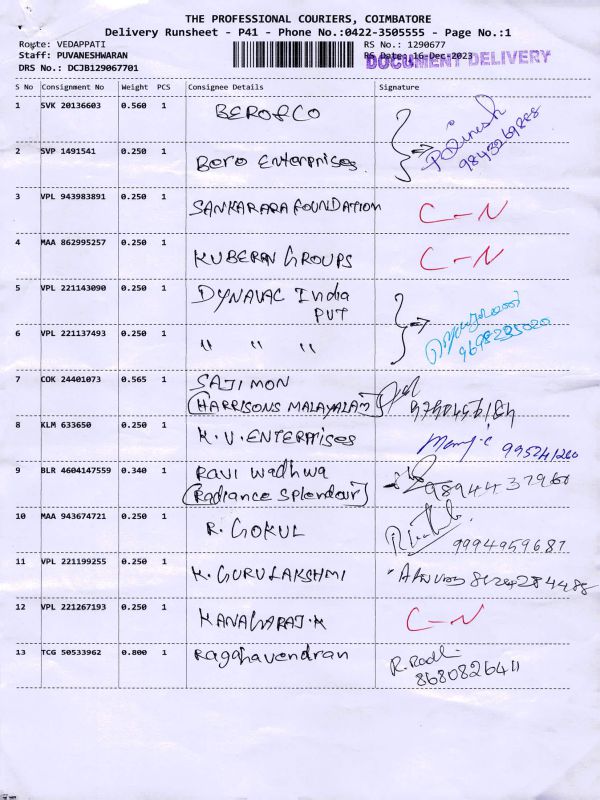 THE PROFESSIONAL COURIERS, COIMBATORE
Delivery Runsheet - P41 - Phone No.:0422-3505555 - Page No.:1
Route: VEDAPPATI RS No.: 1290677
Staff: PUVANESHWARAN RS Date: 16-Dec-2023
DOCUMENT DELIVERY
DRS No.: DCJB129067701
S No Consignment No Weight PCS Consignee Details Signature
1 SVK 20136603 0.560 1 BEROFCO
9843269288
2 SVP 1491541 0.250 1 Bero Enterprises
3 VPL 943983891 0.250 1 SANKARARA FOUNDATION C-N
4 MAA 862995257 0.250 1 KUBERAN GROUPS C-N
5 VPL 221143090 0.250 1 DYNAVAC India
PVT
6 VPL 221137493 0.250 1 " " "
9698235020
7 COK 24401073 0.565 1 SAJI MON
(HARRISONS MALAYALAM)
8 KLM 633650 0.250 1 K.V. ENTERPRISES 995241260
9 BLR 4604147559 0.340 1 RAVI Wadhwa
(Radiance Splendour) 9894437960
10 MAA 943674721 0.250 1 R. GOKUL
9994959687
11 VPL 221199255 0.250 1 K. GURULAKSHMI
12 VPL 221267193 0.250 1 KANAGARAJ.K C-N
13 TCG 50533962 0.800 1 Ragahavendran
8680826411